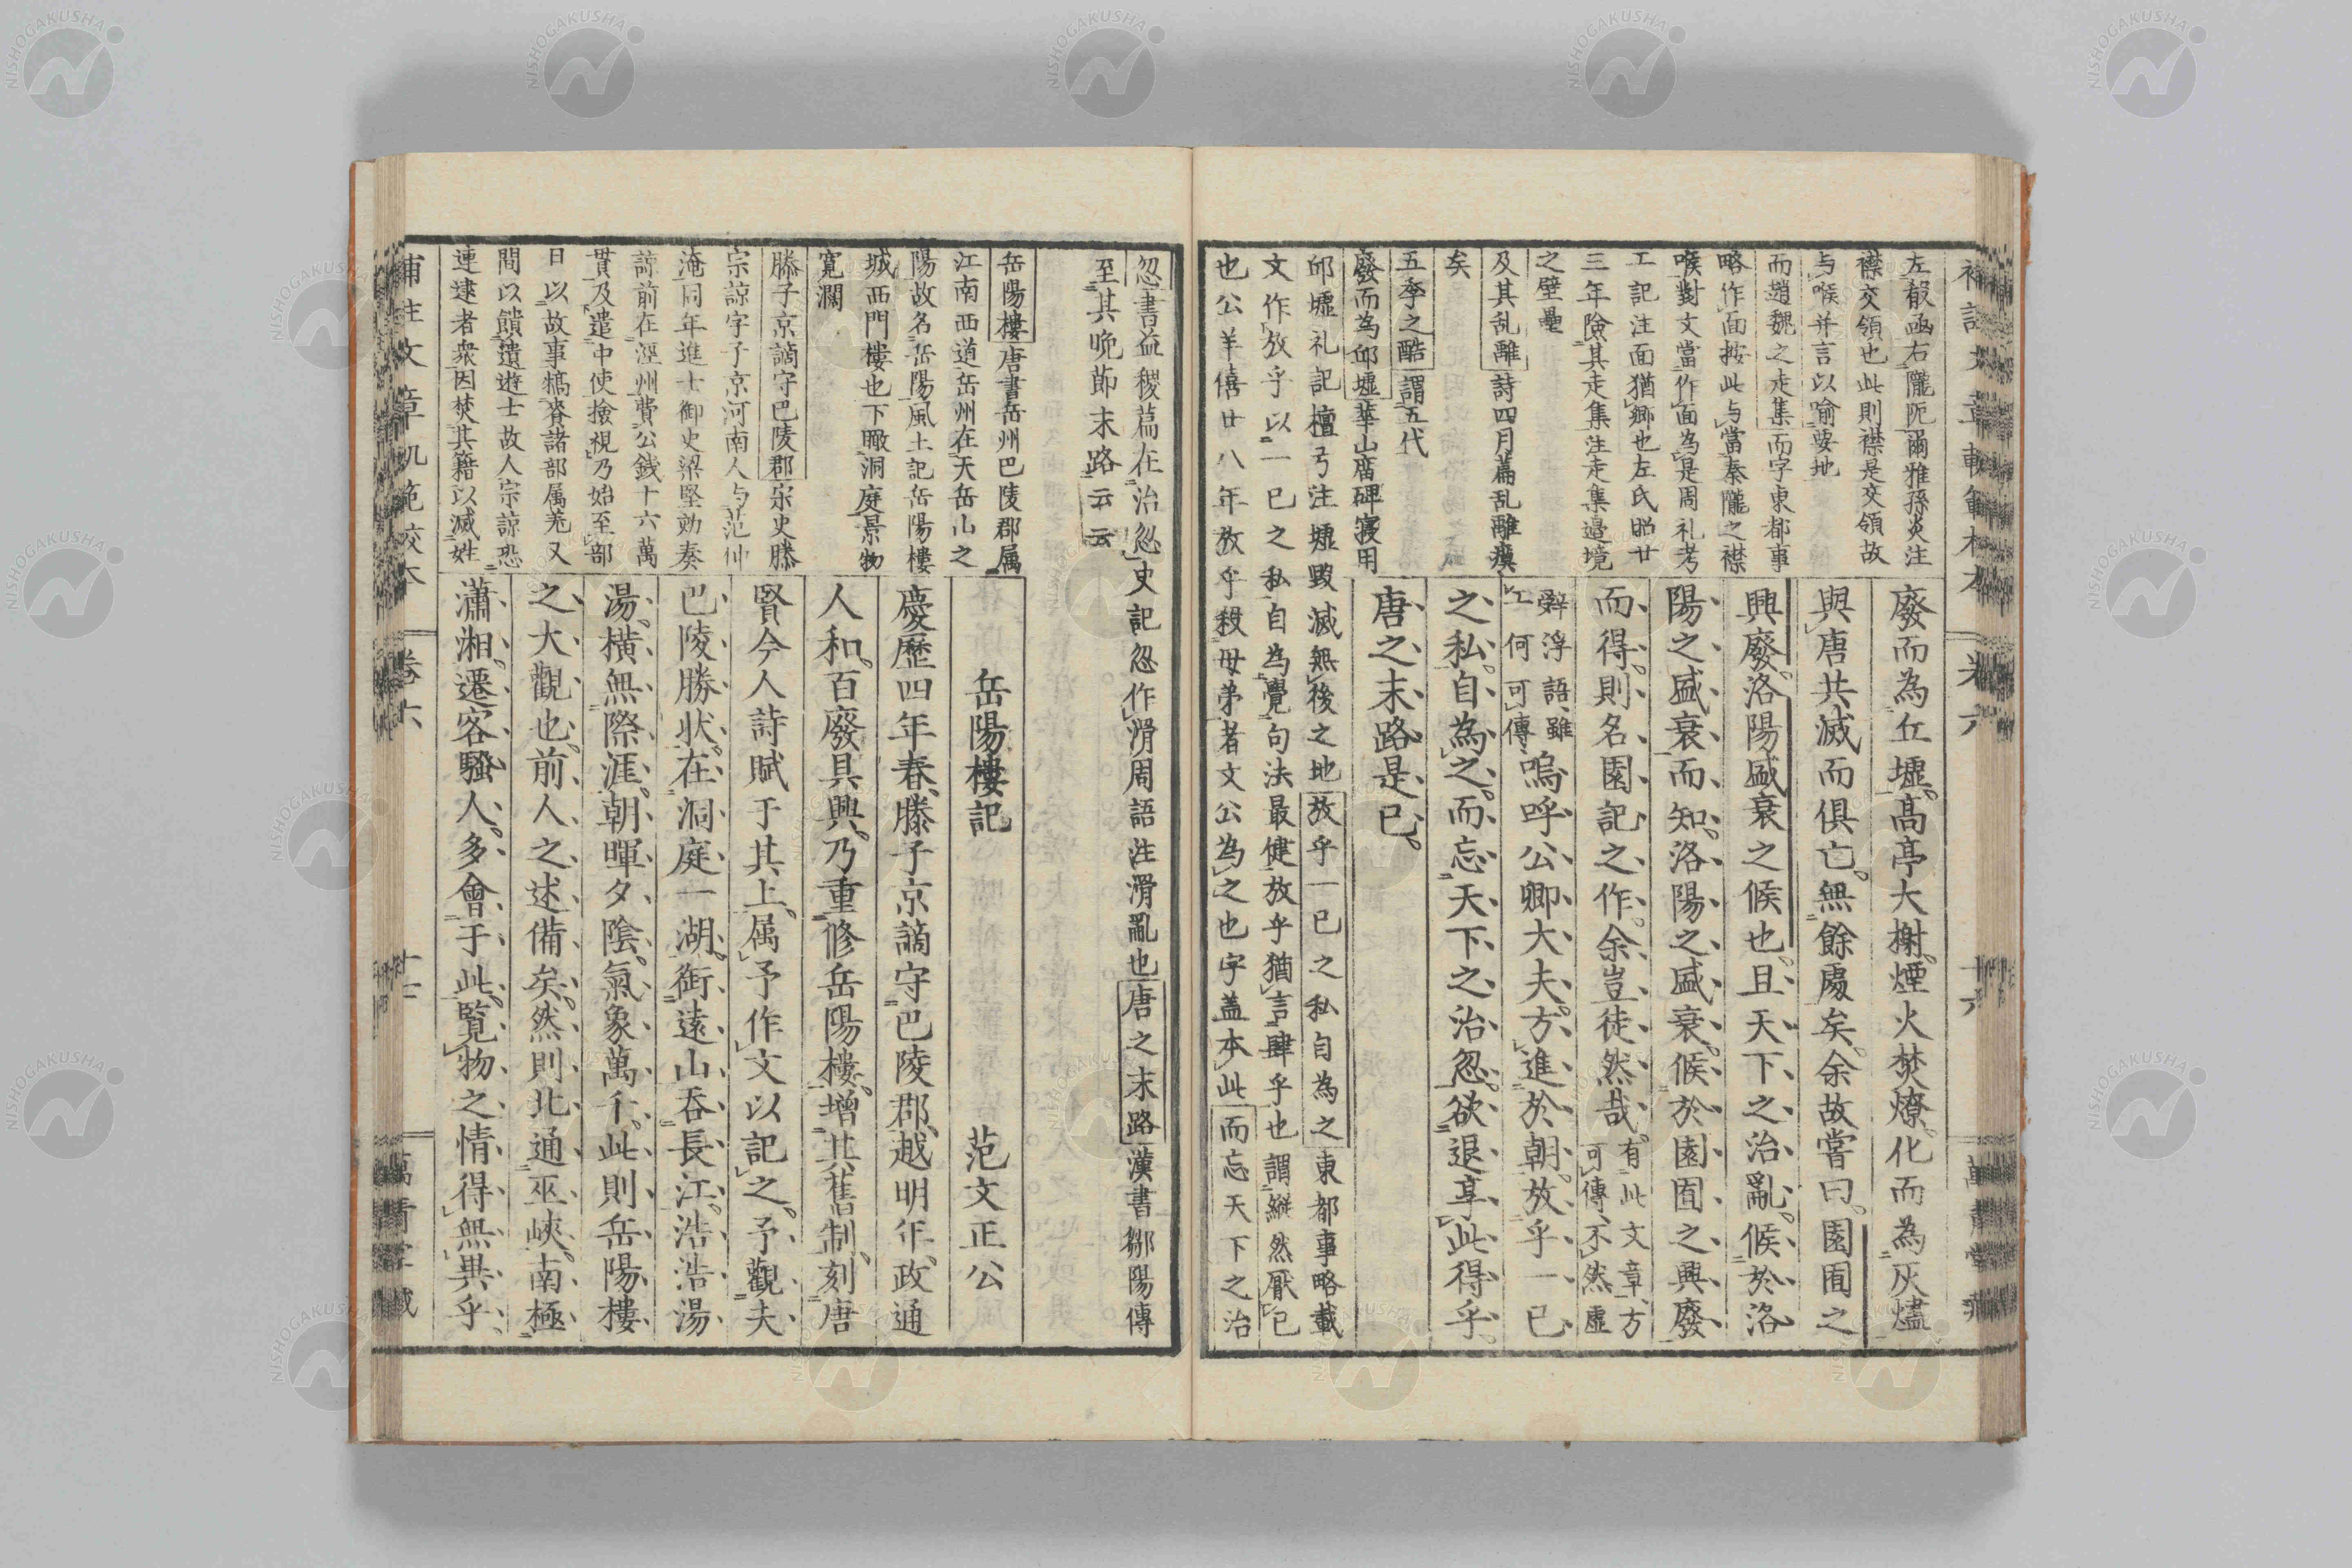 補註文章軌範校本
卷六
左殽函右隴阨爾雅孫炎注
襟交領也此則襟是交領故
与喉并言以喻要地
而趙魏之走集而字東都事
略作面按此与當秦隴之襟
喉對文當作面為是周礼考
工記注面猶鄉也左氏昭廿
三年險其走集注走集邊境
之壁壘
及其乱離詩四月篇乱離瘼
矣
五季之酷謂五代
廢而為邱墟華山廟碑寝用
邱墟礼記檀弓注墟毀滅無後之地放乎一已之私自為之東都事略載
文作放乎以一已之私自為覺句法最健放乎猶言肆乎也謂縱然厭已
也公羊僖廿八年放乎殺母弟者文公為之也字蓋本此而忘天下之治
廢而為丘墟高亭大榭煙火焚燎化而為灰燼
與唐共滅而俱亡無餘處矣余故嘗曰園囿之
興廢洛陽盛衰之候也且天下之治亂候於洛
陽之盛衰而知洛陽之盛衰候於園囿之興廢
而得則名園記之作余豈徒然哉
有此文章方
可傳不然虛
辭浮語雖
工何可傳
嗚呼公卿大夫方進於朝放乎一已
之私自為之而忘天下之治忽欲退享此得乎
唐之末路是已
忽書益稷篇在治忽史記忽作滑周語注滑亂也唐之末路漢書鄒陽傳
至其晩節末路云云
岳陽樓唐書岳州巴陵郡属
江南西道岳州在天岳山之
陽故名岳陽風土記岳陽樓
城西門樓也下瞰洞庭景物
寛濶
滕子京謫守巴陵郡宋史滕
宗諒字子京河南人与范仲
淹同年進士御史梁堅劾奏
諒前在涇州費公錢十六萬
貫及遣中使撿視乃始至部
日以故事犒賚諸部属羌又
間以饋遺遊士故人宗諒恐
連逮者衆因焚其籍以滅姓
岳陽樓記
范文正公
慶歷四年春滕子京謫守巴陵郡越明年政通
人和百廢具興乃重修岳陽樓增其舊制刻唐
賢今人詩賦于其上属予作文以記之予觀夫
巴陵勝状在洞庭一湖銜遠山吞長江浩浩湯
湯橫無際涯朝暉夕陰氣象萬千此則岳陽樓
之大觀也前人之述備矣然則北通巫峽南極
瀟湘遷客騷人多會于此覽物之情得無異乎
補註文章軌範校本
卷六